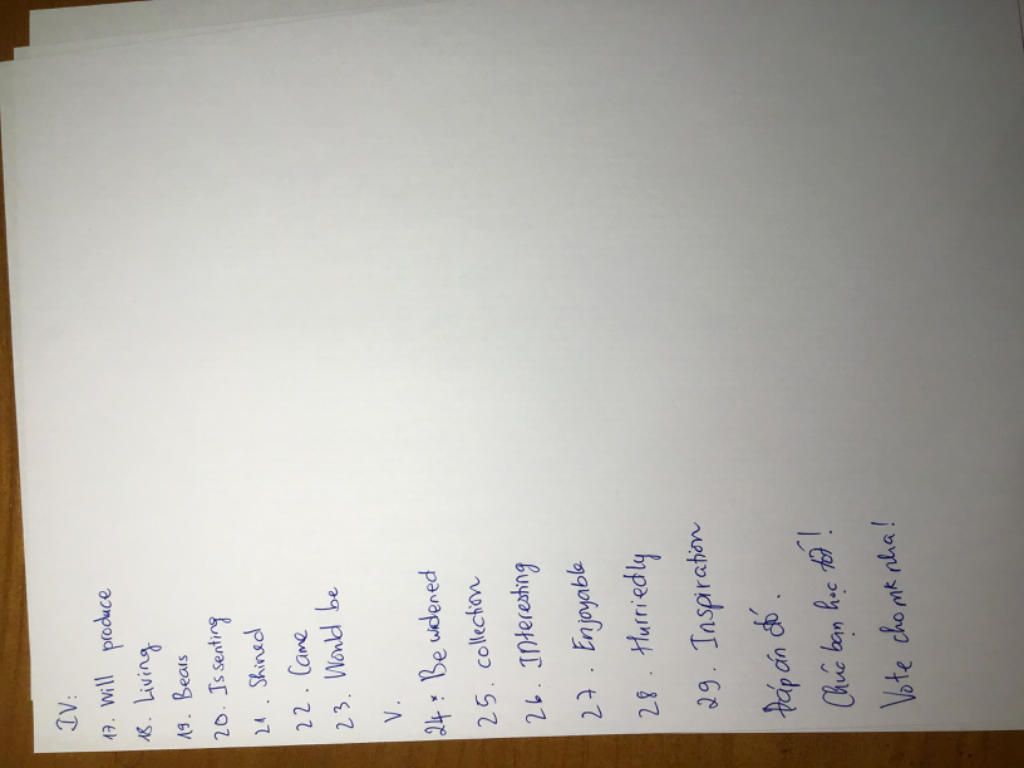 IV:
17. Will produce
18. Living
19. Bears
20. Is senting
21. Shined
22. Came
23. Would be
V.
24. Be widened
25. collection
26. INteresting
27. Enjoyable
28. Hurriedly
29. Inspiration
Đáp án đó.
Chúc bạn học tốt!
Vote cho mk nha!